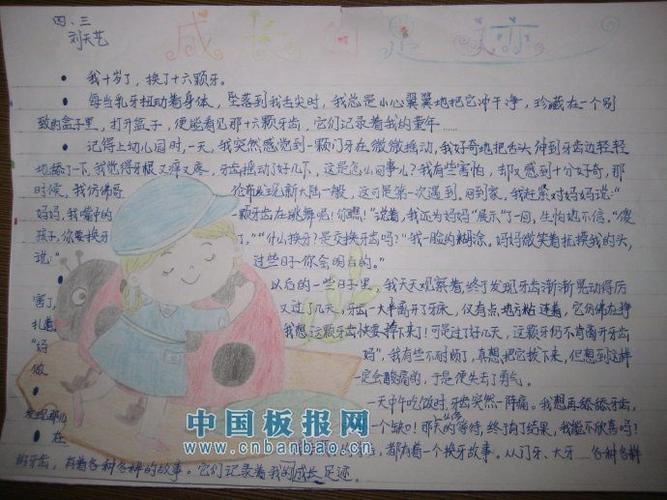 四、三
刘天艺
成长的足迹
我十岁了，换了十六颗牙。
每当乳牙扭动着身体，坠落到我舌尖时，我总是小心翼翼地把它冲干净，珍藏在一个别
致的盒子里，打开盒子，便能看见那十六颗牙齿，它们记录着我的童年……
记得上幼园时，一天，我突然感觉到一颗门牙在微微摇动，我好奇地把舌头伸到牙齿边轻轻
地舔了一下，我觉得牙根又痒又疼，牙齿摇动了好几下，这是怎么回事儿？我有些害怕，却又感到十分好奇，那
时候，我仿佛哥 伦布发现新大陆一般，这可是第一次遇到。回到家，我赶紧对妈妈说：“
妈妈，我嘴中的 一颗牙齿在跳舞呢！你瞧！”说着，我还为妈妈“展示”了一回，生怕她不信。“傻
孩子，你要换牙 了。”“什么换牙？是交换牙齿吗？”我一脸的糊涂。妈妈微笑着抚摸我的头，
说：“ 过些日子你会明白的。”
以后的一些日子里，我天天观察着，终于发现牙齿渐渐晃动得厉
害了， 又过了几天，牙齿一大半离开了牙床，仅有点地方粘连着，它仿佛在挣
扎着， 我想，这颗牙齿快要掉下来！可是过了好几天，这颗牙仍不肯离开牙齿
“好 妈”，我有些不耐烦了，真想把它拔下来，但想到这样
做 一定会酸痛的，于是便失去了勇气。
一天中午吃饭时，牙齿突然一阵痛。我想再舔舔牙齿，
发现那儿 一个缺口！那天的等待，终于有了结果，我能不欣喜吗？
在 都有着一个换牙故事。从门牙、大牙……各种各样
的牙齿，有着各种各样的故事。它们记录着我的成长足迹。
中国板报网
www.cnbanbao.cn